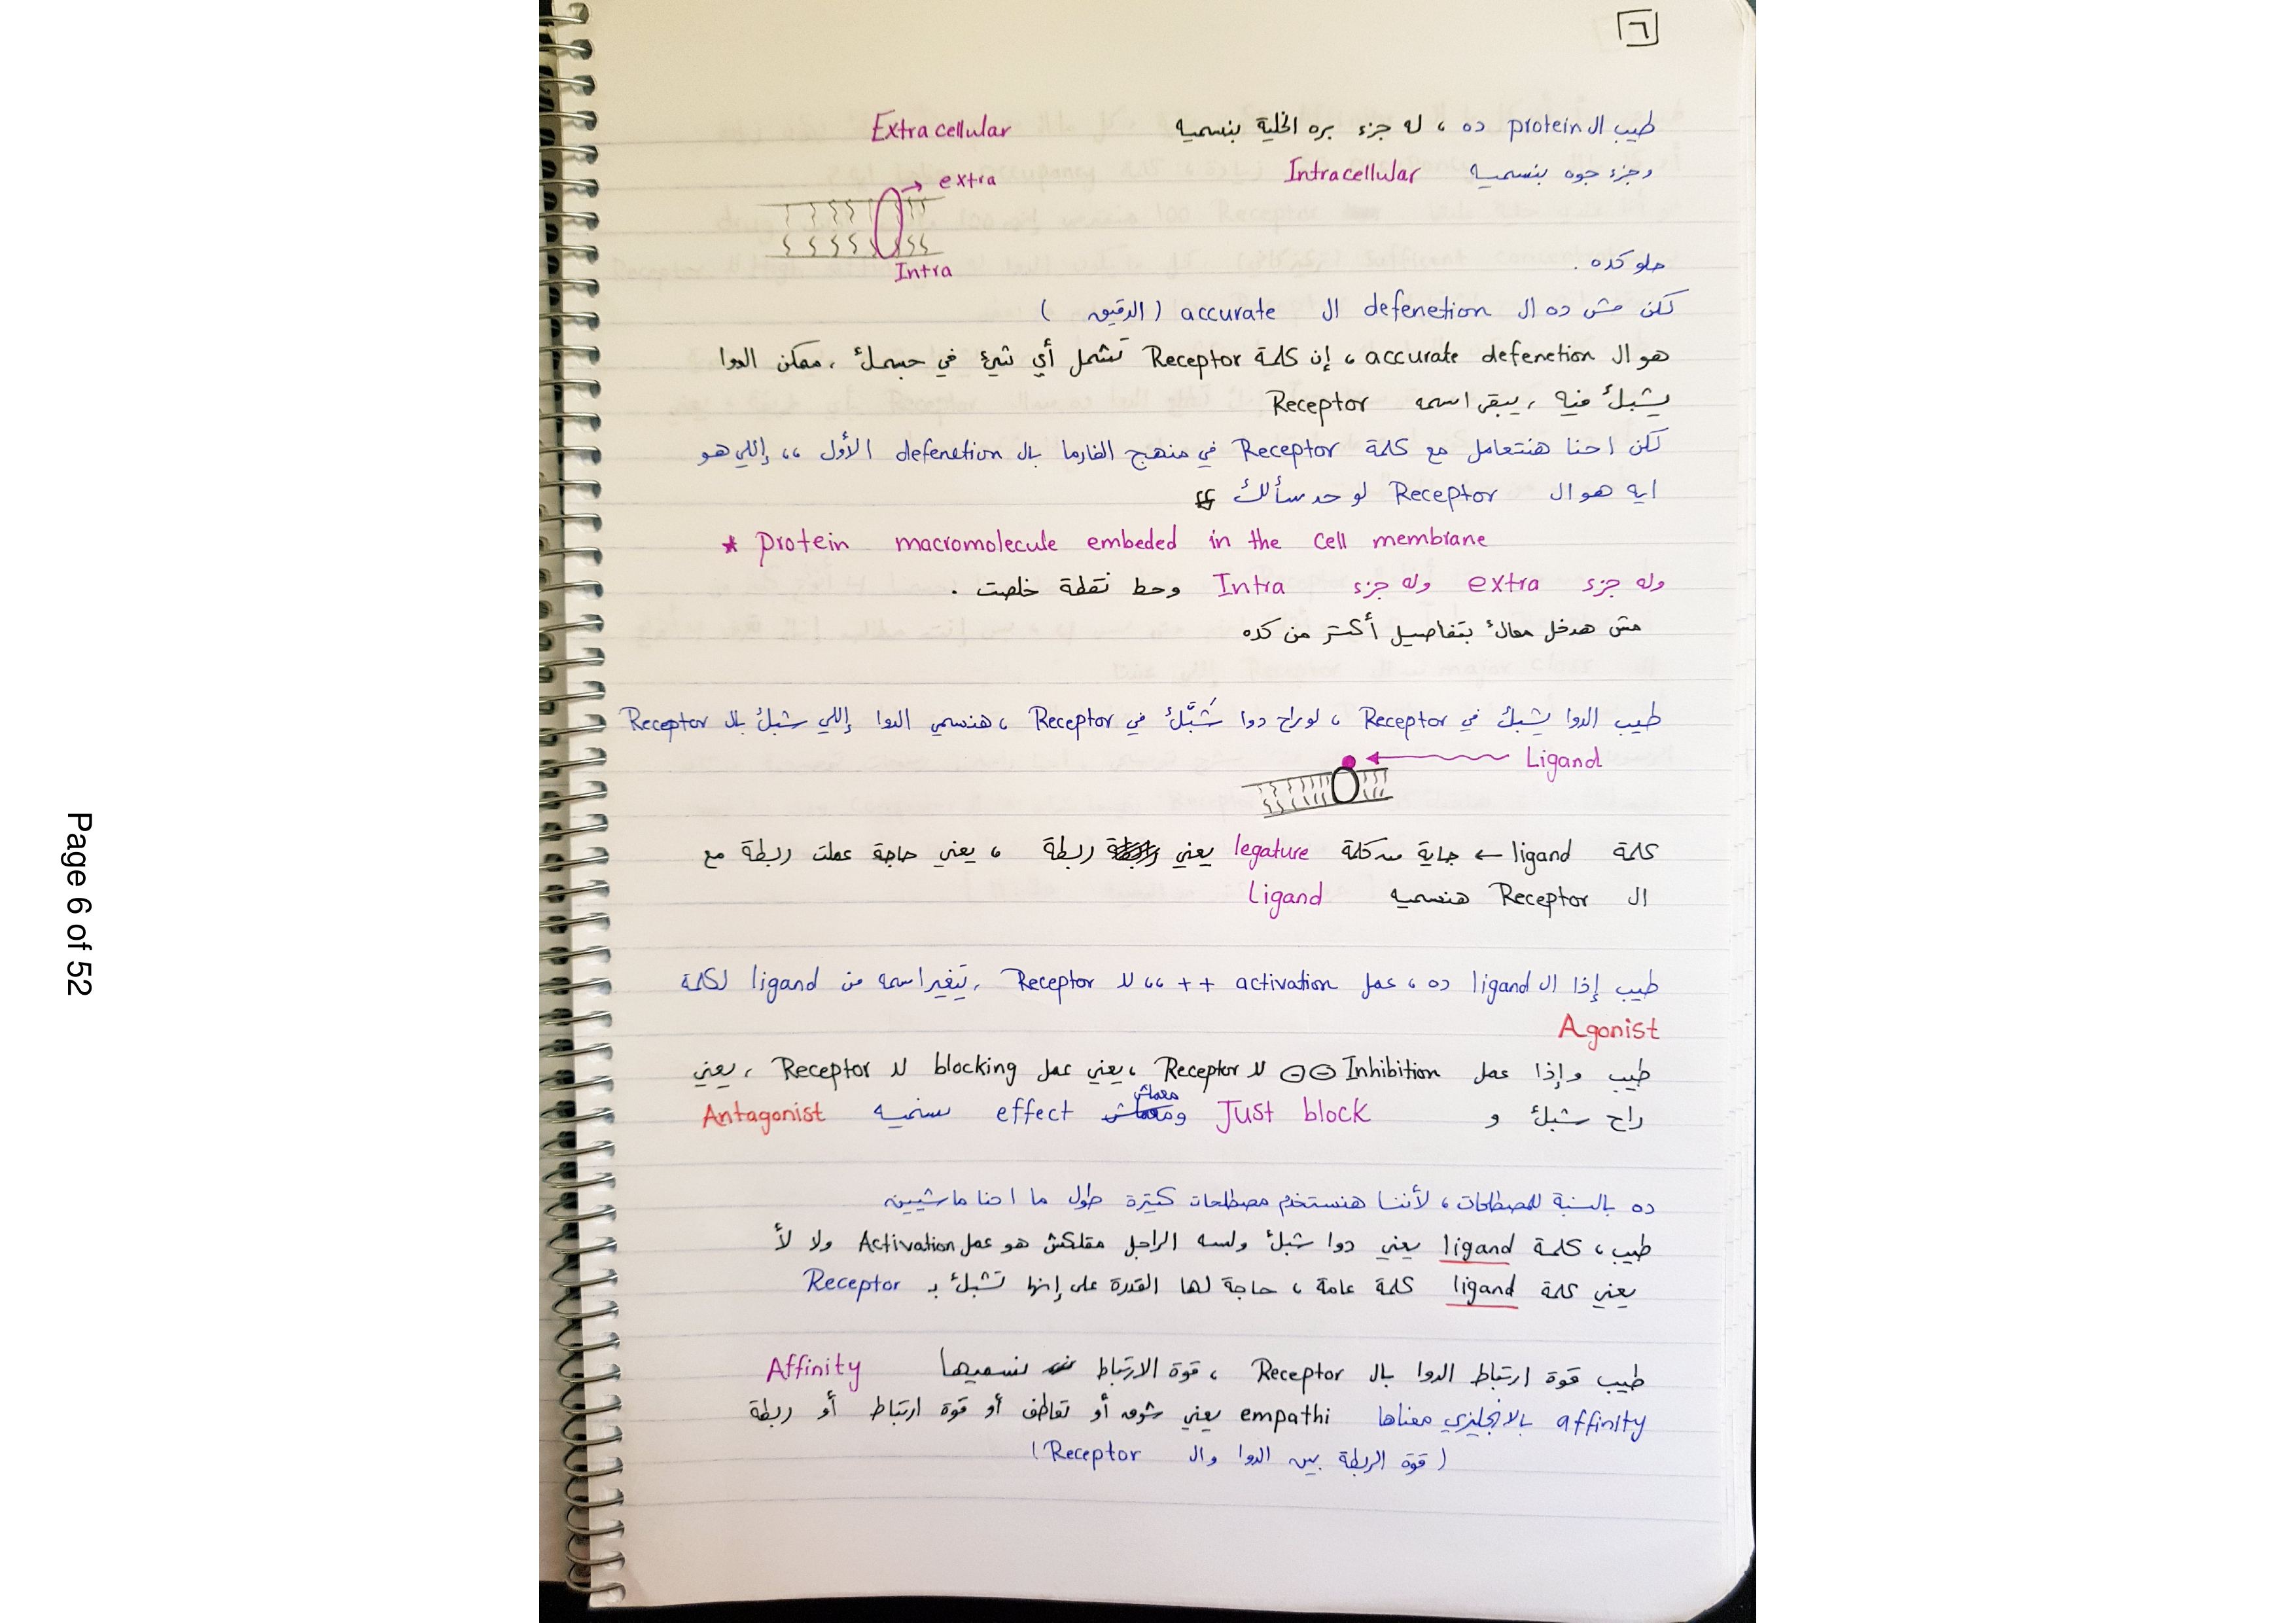 ٦
طيب ال protein ده ، له جزء بره الخلية بنسميه Extracellular
وجزء جوه بنسميه Intracellular
extra
Intra
حلو كده .
لكن مش ده ال defenetion ال accurate ( الدقيق )
هو ال accurate defenetion ، إن كلمة Receptor تشمل أي شئ في جسمك ، ممكن الدوا
يشبك فيه ، يبقى اسمه Receptor
لكن احنا هنتعامل مع كلمة Receptor في منهج الفارما بال defenetion الأول ،، إللي هو
ايه هو ال Receptor لو حد سألك
* protein macromolecule embeded in the cell membrane
وله جزء extra وله جزء Intra وحط نقطة خلصت .
مش هدخل معاك بتفاصيل أكتر من كده
طيب الدوا يشبك في Receptor ، لو راح دوا شَبَّك في Receptor ، هنسمي الدوا إللي شبك بال Receptor
Ligand
كلمة ligand ← جاية من كلمة legature يعني ربطة ، يعني حاجة عملت ربطة مع
ال Receptor هنسميه Ligand
طيب إذا ال ligand ده ، عمل activation ++ ،، لل Receptor ، يتغير اسمه من ligand لكلمة
Agonist
طيب وإذا عمل Inhibition ⊖⊖ لل Receptor ، يعني عمل blocking لل Receptor ، يعني
راح شبك و Just block ومعملش effect نسميه Antagonist
ده بالنسبة للمصطلحات ، لأننا هنستخدم مصطلحات كتيرة طول ما احنا ماشيين
طيب ، كلمة ligand يعني دوا شبك ولسه الراجل مقلكش هو عمل Activation ولا لأ
يعني كلمة ligand كلمة عامة ، حاجة لها القدرة على إنها تشبك بـ Receptor
طيب قوة ارتباط الدوا بال Receptor ، قوة الارتباط نسميها Affinity
affinity بالانجليزي معناها empathi يعني شوق أو تعاطف أو قوة ارتباط أو ربطة
( قوة الربطة بين الدوا وال Receptor )
Page 6 of 52